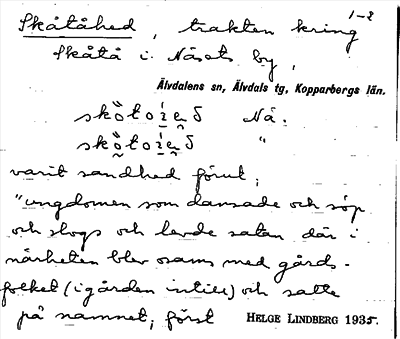 1-2
Skåtåhed, trakten kring
Skåtå i Näsets by,
Älvdalens sn, Älvdals tg, Kopparbergs län.
Nä.
"
varit sandhed förut;
"ungdomen som dansade och söp
och slogs och levde satan där i
närheten blev osams med gårds-
folket (i gården intill) och satte
på namnet; först HELGE LINDBERG 1935.